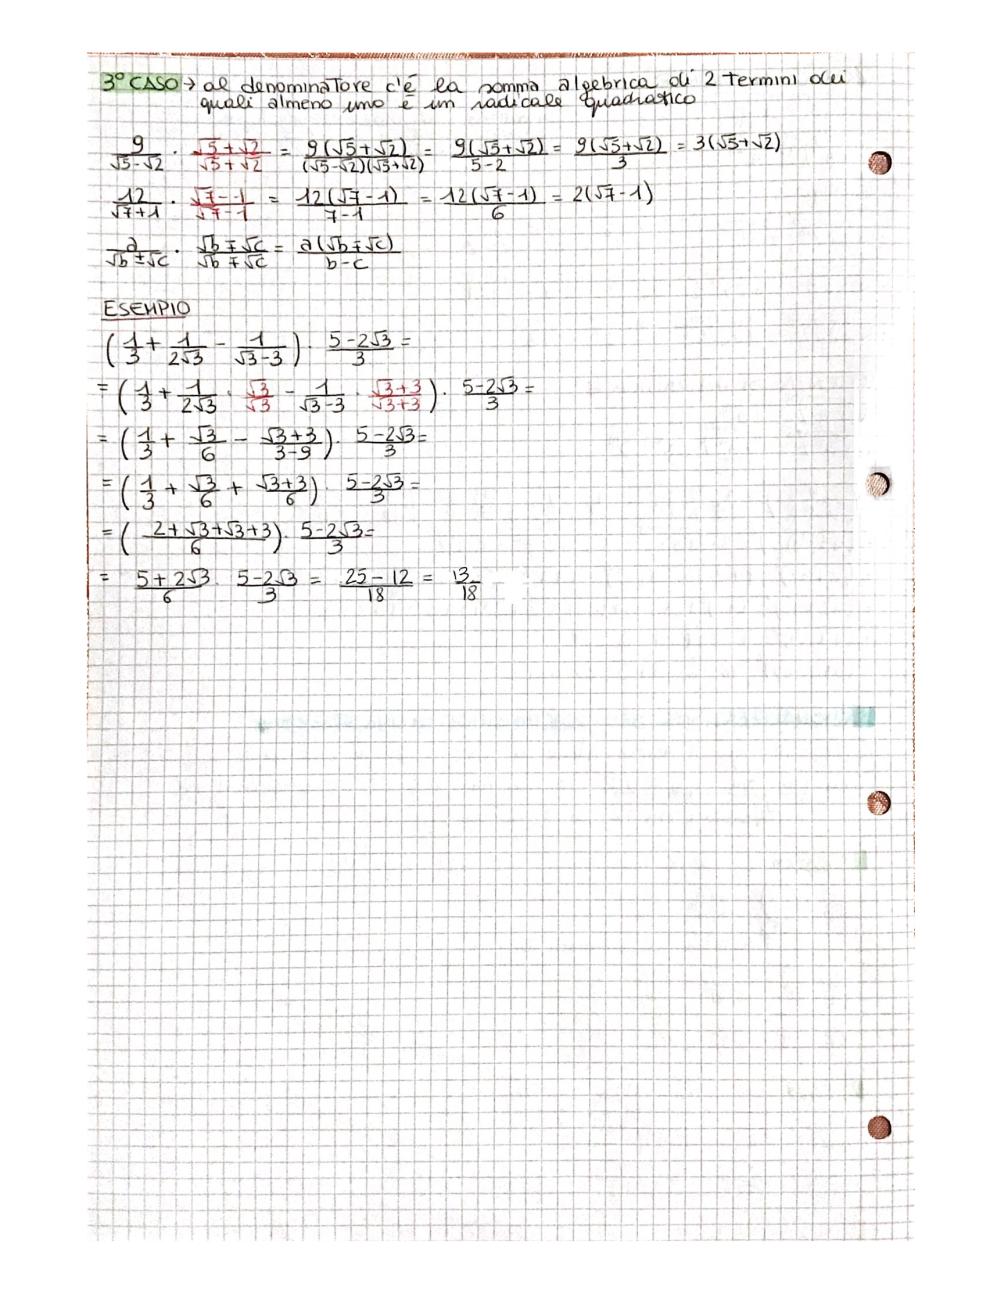 3° CASO → al denominatore c'è la somma algebrica di 2 termini dei
quali almeno uno è un radicale quadratico
9/(√5-√2) · (√5+√2)/(√5+√2) = 9(√5+√2)/((√5-√2)(√5+√2)) = 9(√5+√2)/(5-2) = 9(√5+√2)/3 = 3(√5+√2)
12/(√7+1) · (√7-1)/(√7-1) = 12(√7-1)/(7-1) = 12(√7-1)/6 = 2(√7-1)
a/(√b±√c) · (√b∓√c)/(√b∓√c) = a(√b∓√c)/(b-c)
ESEMPIO
(1/3 + 1/(2√3) - 1/(√3-3)) · (5-2√3)/3 =
= (1/3 + 1/(2√3) · √3/√3 - 1/(√3-3) · (√3+3)/(√3+3)) · (5-2√3)/3 =
= (1/3 + √3/6 - (√3+3)/(3-9)) · (5-2√3)/3 =
= (1/3 + √3/6 + (√3+3)/6) · (5-2√3)/3 =
= ((2+√3+√3+3)/6) · (5-2√3)/3 =
= (5+2√3)/6 · (5-2√3)/3 = (25-12)/18 = 13/18